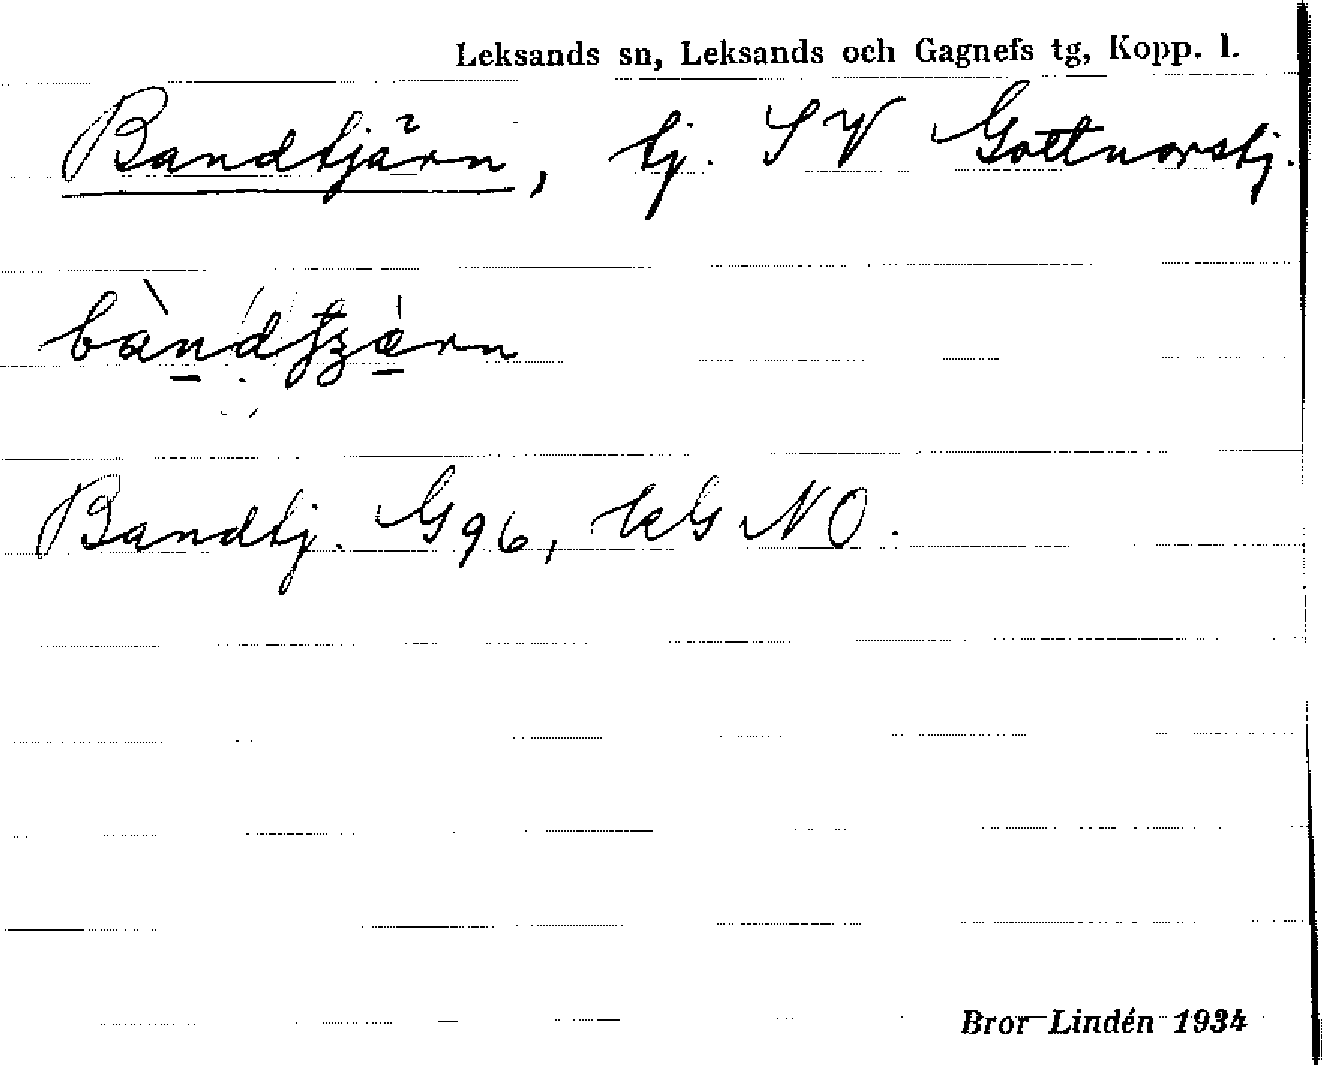 Leksands sn, Leksands och Gagnefs tg, Kopp. l.
Bandtjärn, tj. SV Gottnorstj.
Bandtj. G96, kG NO.
Bror Lindén 1934